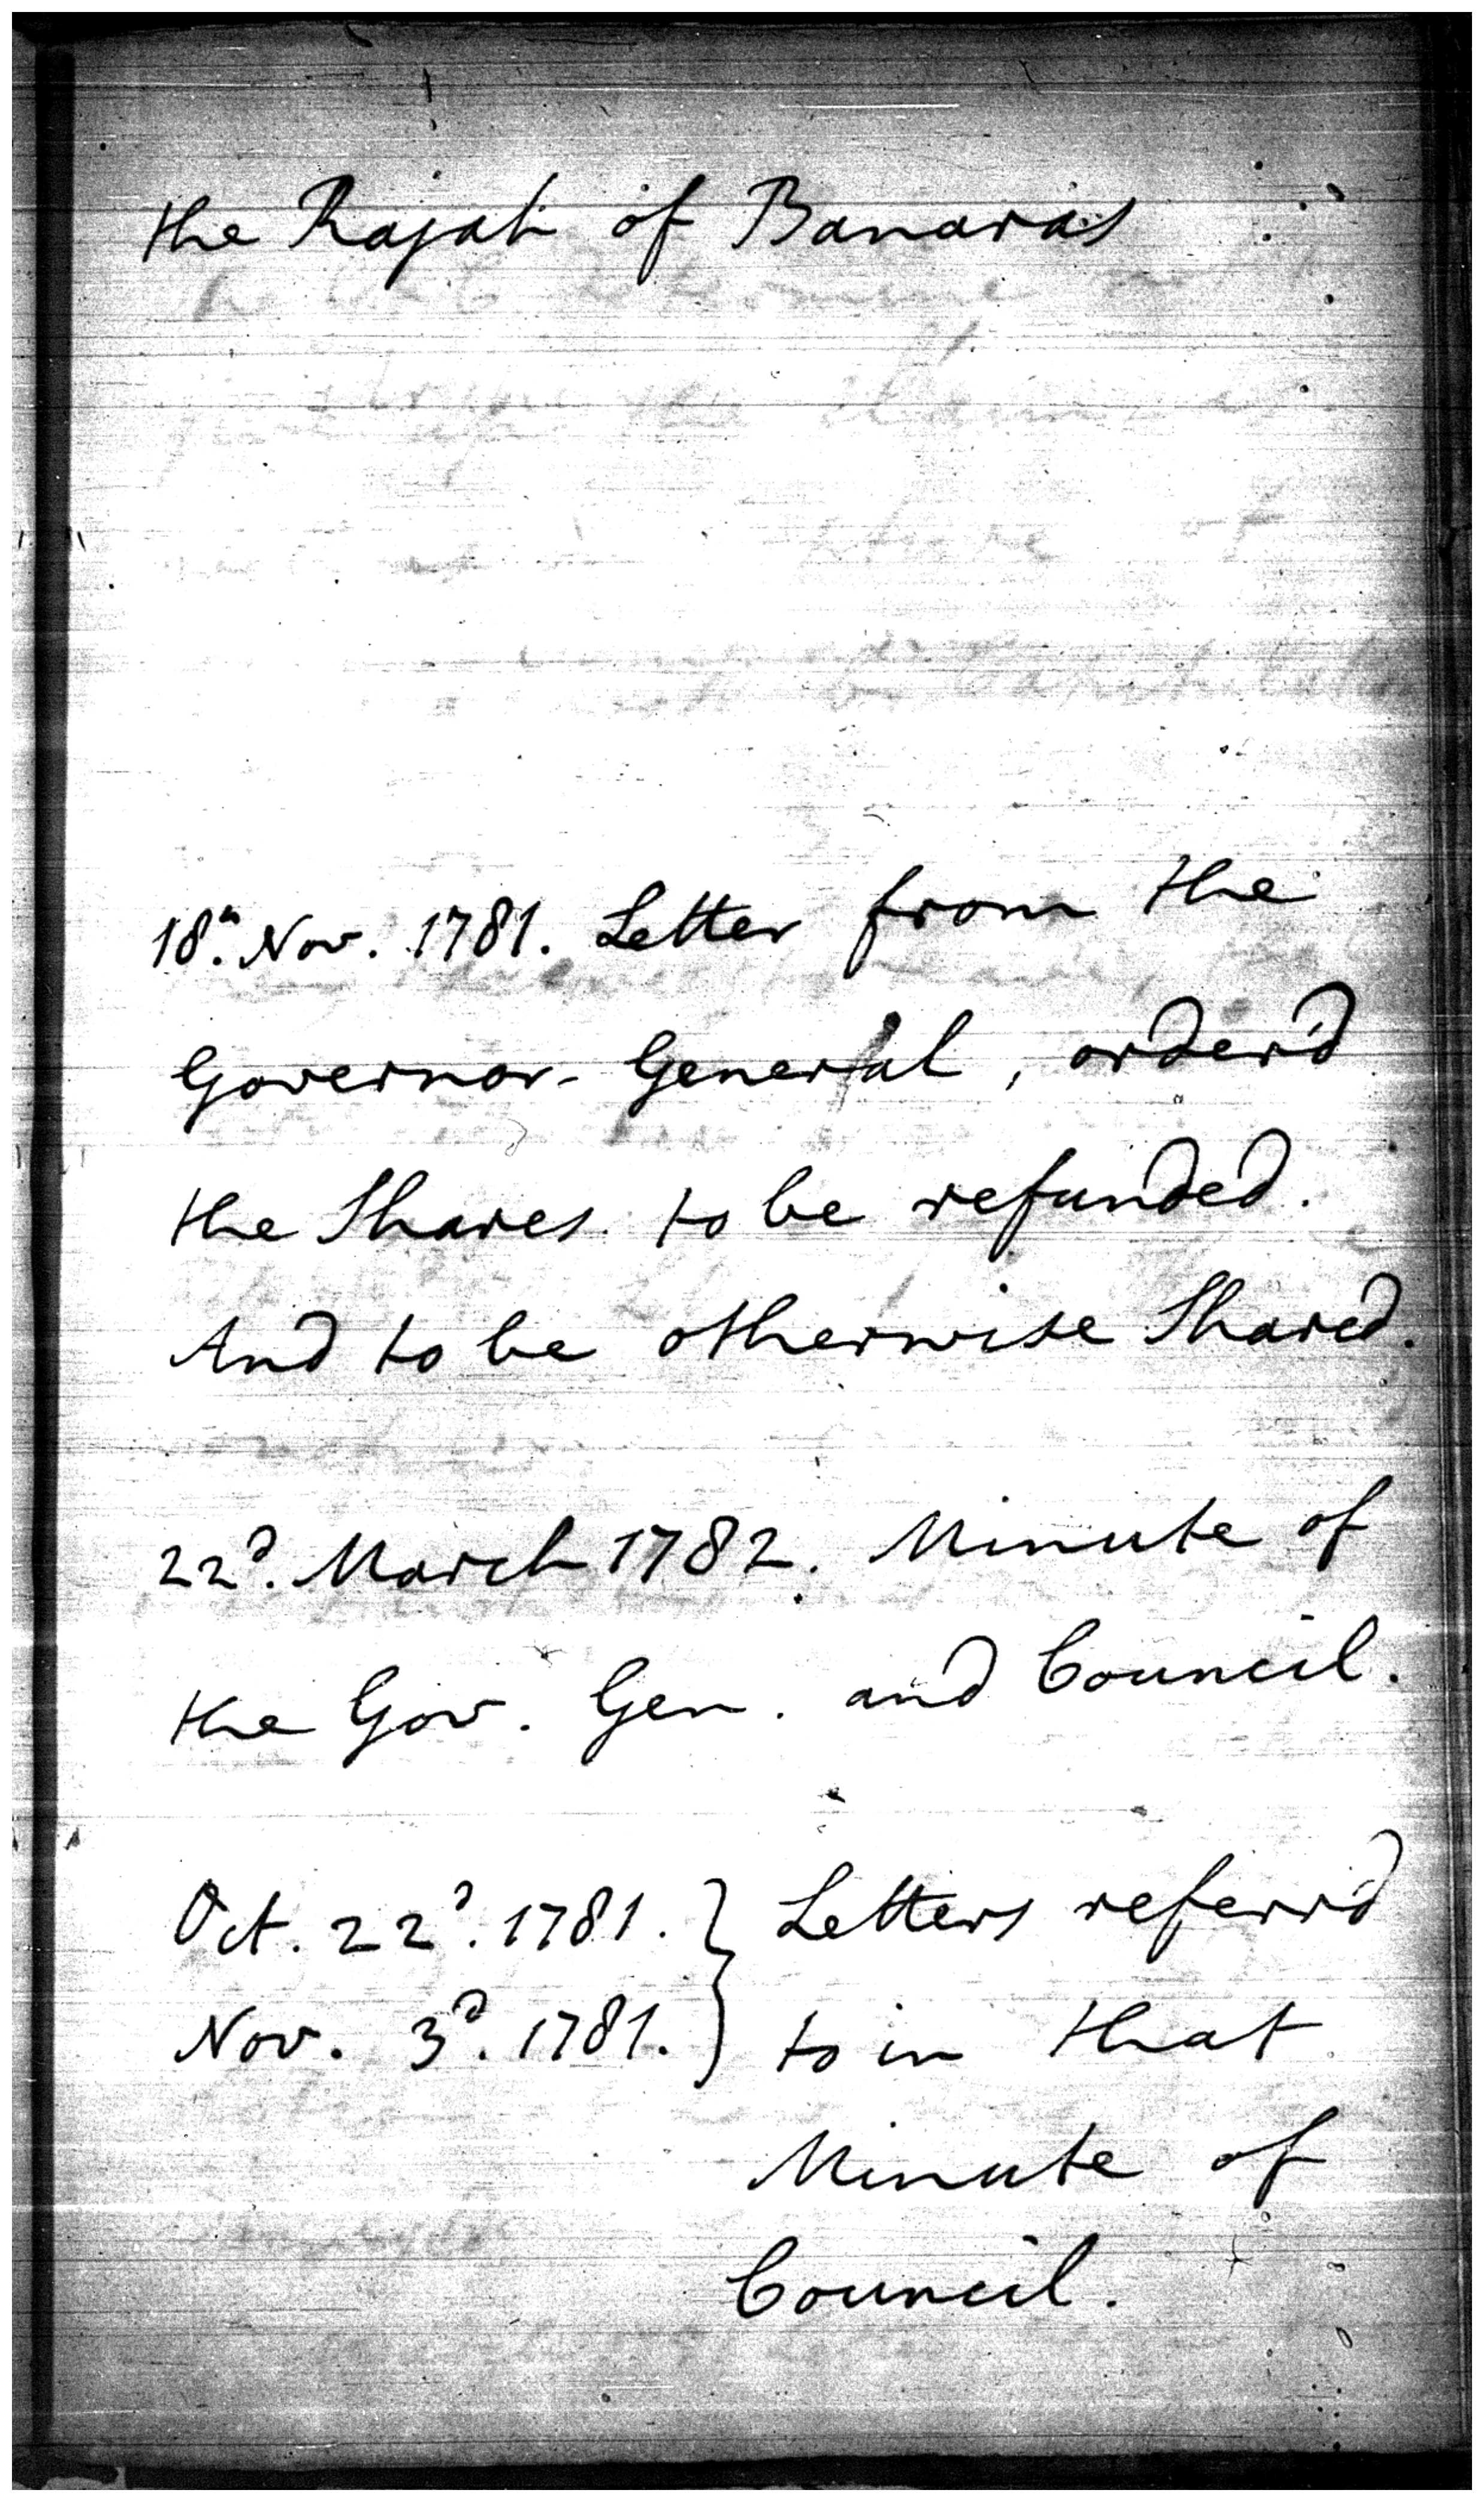 the Rajah of Banaras
18.th Nov. 1781. Letter from the
Governor-General, order'd
the Shares to be refunded.
And to be otherwise Shared.
22d. March 1782. Minute of
the Gov. Gen. and Council.
Oct. 22d. 1781. } Letters referr'd
Nov. 3d. 1781. } to in that
Minute of
Council.